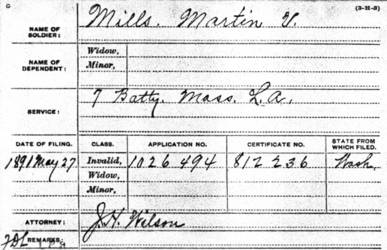 G (3-H-B)
NAME OF SOLDIER: Mills, Martin V.
NAME OF DEPENDENT: Widow,
Minor,
SERVICE: 7 Batty. Mass. L.A.
DATE OF FILING. CLASS. APPLICATION NO. CERTIFICATE NO. STATE FROM WHICH FILED.
1891 May 27 Invalid, 1026 494 812 236 Wash.
Widow,
Minor,
ATTORNEY: J.H. Wilson
REMARKS: